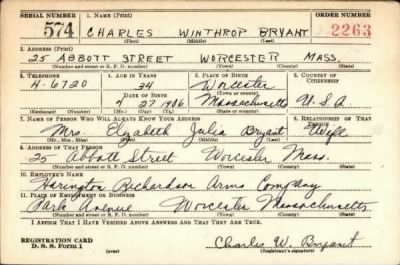 SERIAL NUMBER 1. NAME (Print) ORDER NUMBER
574 CHARLES WINTHROP BRYANT 2263
(First) (Middle) (Last)
2. ADDRESS (Print)
25 ABBOTT STREET WORCESTER MASS.
(Number and street or R. F. D. number) (Town) (County) (State)
3. TELEPHONE 4. AGE IN YEARS 5. PLACE OF BIRTH 6. COUNTRY OF CITIZENSHIP
4-6720 34 Worcester
DATE OF BIRTH (Town or county)
7 27 1906 Massachusetts U.S.A
(Exchange) (Number) (Mo.) (Day) (Yr.) (State or country)
7. NAME OF PERSON WHO WILL ALWAYS KNOW YOUR ADDRESS 8. RELATIONSHIP OF THAT PERSON
Mrs. Elizabeth Julia Bryant Wife
(Mr., Mrs., Miss) (First) (Middle) (Last)
9. ADDRESS OF THAT PERSON
25 Abbott Street Worcester Mass.
(Number and street or R. F. D. number) (Town) (County) (State)
10. EMPLOYER'S NAME
Harington Richardson Arms Company
11. PLACE OF EMPLOYMENT OR BUSINESS
Park Avenue Worcester Massachusetts
(Number and street or R. F. D. number) (Town) (County) (State)
I AFFIRM THAT I HAVE VERIFIED ABOVE ANSWERS AND THAT THEY ARE TRUE.
REGISTRATION CARD
D. S. S. FORM 1 (over) Charles W. Bryant
(Registrant's signature)